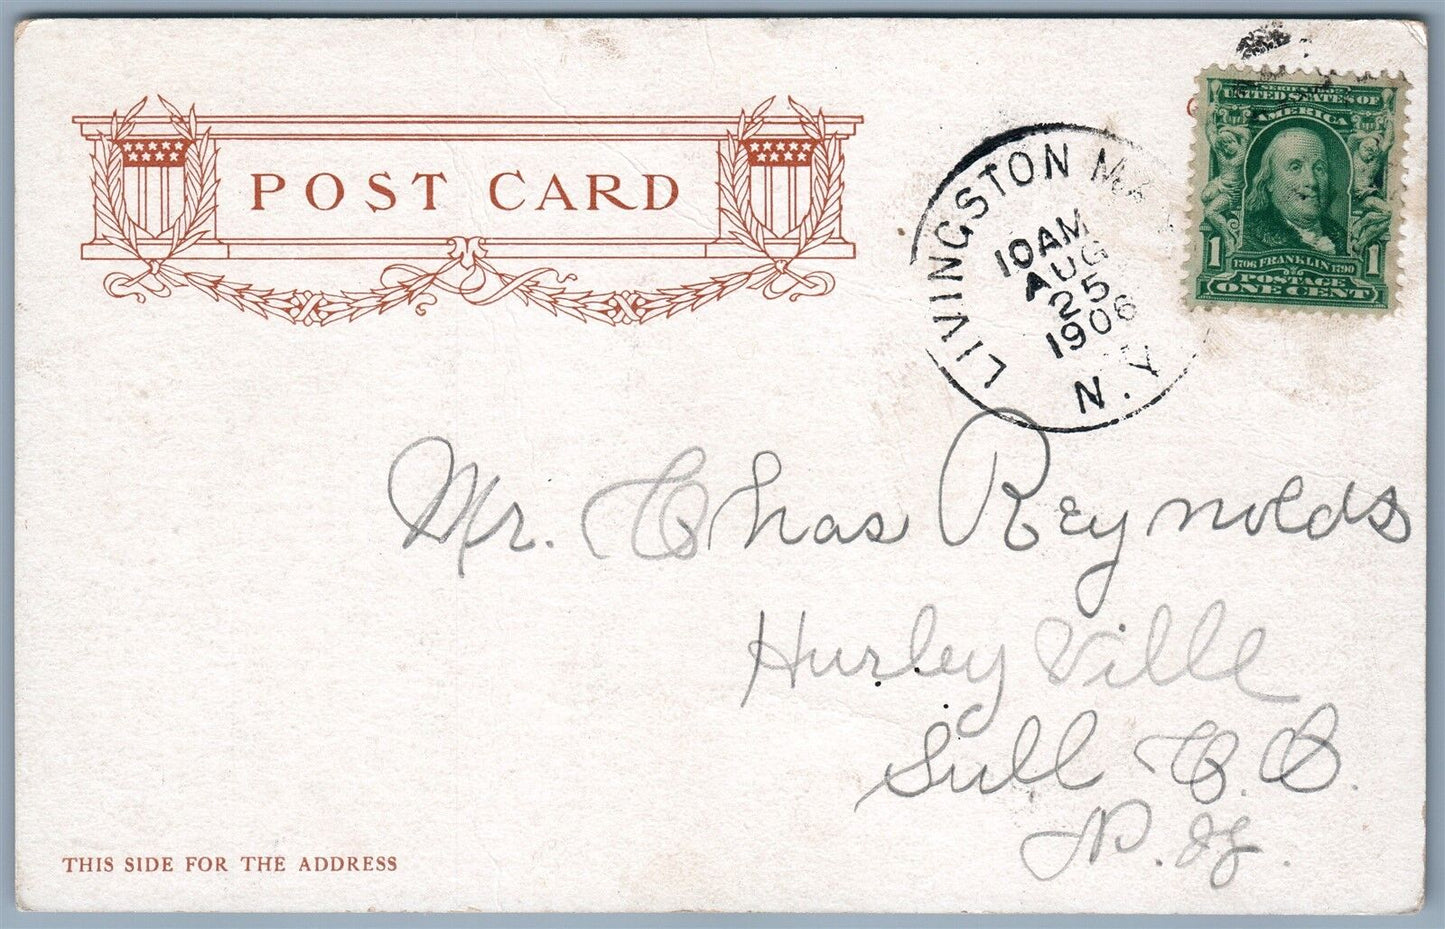 POST CARD
LIVINGSTON MA
10 AM
AUG
25
1906
N.Y.
UNITED STATES OF
AMERICA
1 1706 FRANKLIN 1790 1
POSTAGE
ONE CENT
Mr. Chas Reynolds
HurleyVille
Sull Co.
N. Y.
THIS SIDE FOR THE ADDRESS